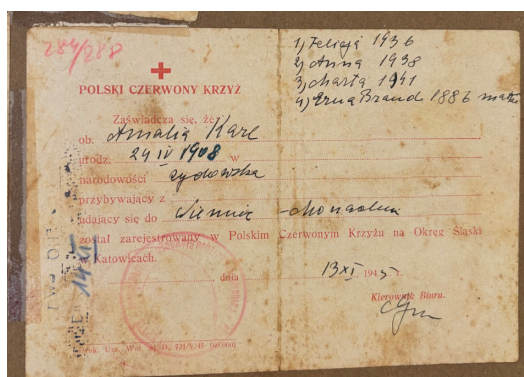 284/288
1) Felicja 1936
2) Anna 1938
3) Marta 1941
4) Erna Brand 1886 matka
POLSKI CZERWONY KRZYŻ
Zaświadcza się, że
ob. Amalia Karl
urodz. 24 IV 1908 w
narodowości żydowska
przybywający z
udający się do Niemiec - Monachium
został zarejestrowany w Polskim Czerwonym Krzyżu na Okręg Śląski
Katowicach.
dnia 13 XI 1945
Kierownik Biura.
14 XI